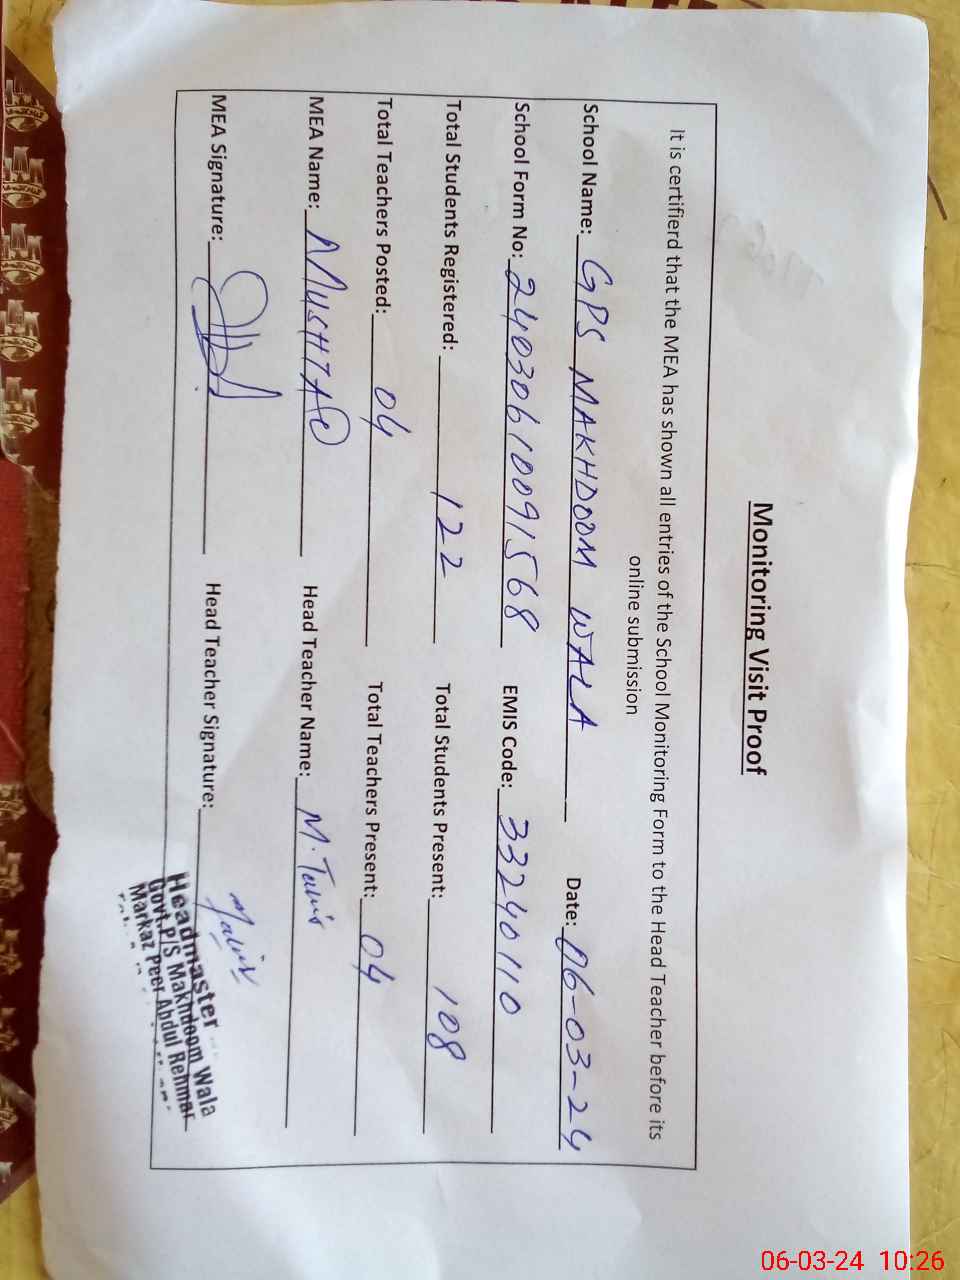 Monitoring Visit Proof
It is certifierd that the MEA has shown all entries of the School Monitoring Form to the Head Teacher before its
online submission
School Name: GPS MAKHDOOM WALA Date: 06-03-24
School Form No: 24030610091568 EMIS Code: 33240110
Total Students Registered: 122 Total Students Present: 108
Total Teachers Posted: 04 Total Teachers Present: 04
MEA Name: MUSHTAQ Head Teacher Name: M.
MEA Signature: Head Teacher Signature:
Headmaster
Govt.P/S Makhdoom Wala
Markaz Peer Abdul Rehman
06-03-24 10:26